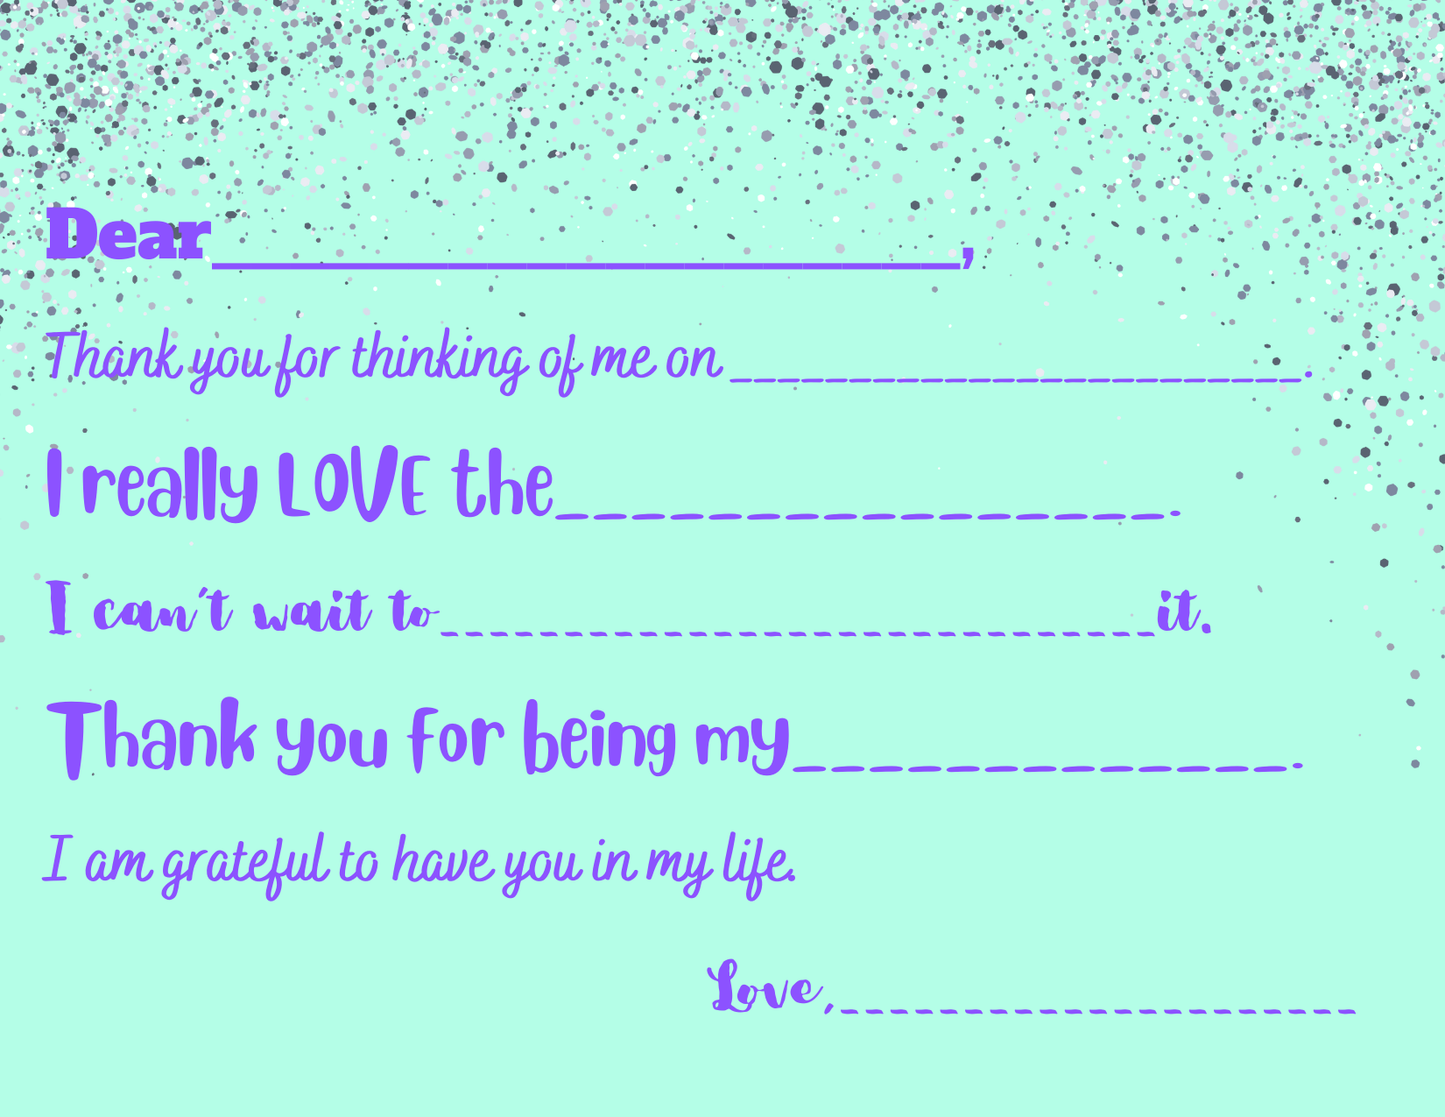 Dear___________________,
Thank you for thinking of me on ________________________.
I really LOVE the________________.
I can't wait to_____________________________it.
Thank you for being my_____________.
I am grateful to have you in my life.
Love,_____________________